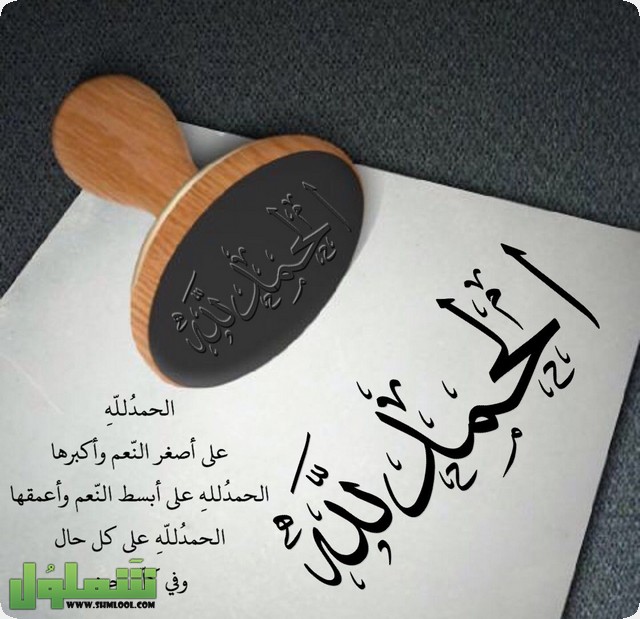 الحمد لله
الحمد لله
الحمدُللّهِ
على أصغر النّعم وأكبرها
الحمدُللهِ على أبسط النّعم وأعمقها
الحمدُللّهِ على كل حال
وفي
شملول
WWW.SHMLOOL.COM